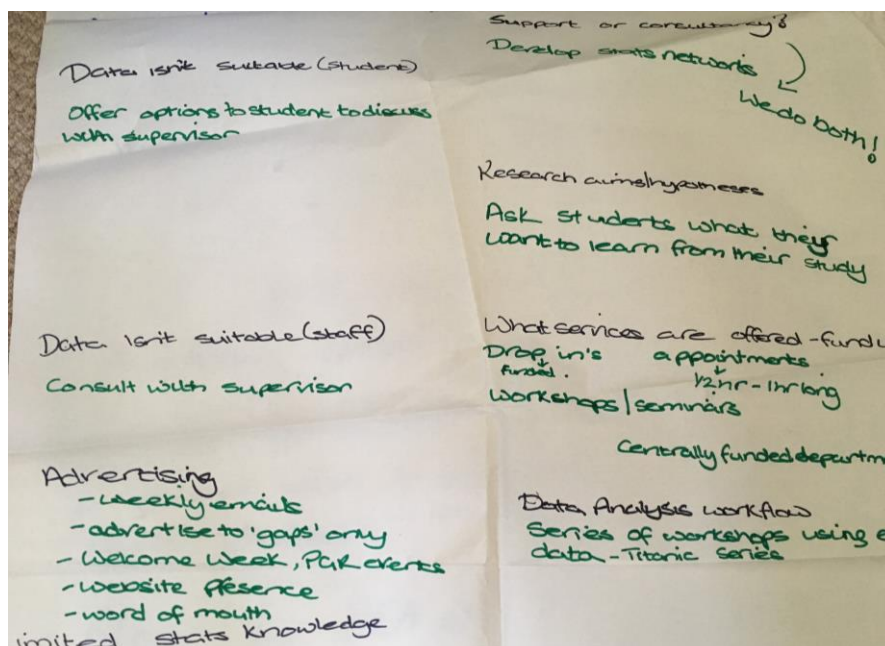 Data isn't suitable (student)
Offer options to student to discuss
with supervisor
Data isn't suitable (staff)
Consult with supervisor
Advertising
- weekly emails
- advertise to 'gaps' only
- Welcome Week, PGR events
- website presence
- word of mouth
imited stats knowledge
Support or consultancy?
Develop stats networks
We do both!
Research aims/hypotheses
Ask students what they
want to learn from their study
What services are offered - fund
Drop in's appointments
funded. 1/2 hr - 1hr long
workshops/seminars
Centrally funded departm
Data Analysis workflow
Series of workshops using e
data - Titanic series